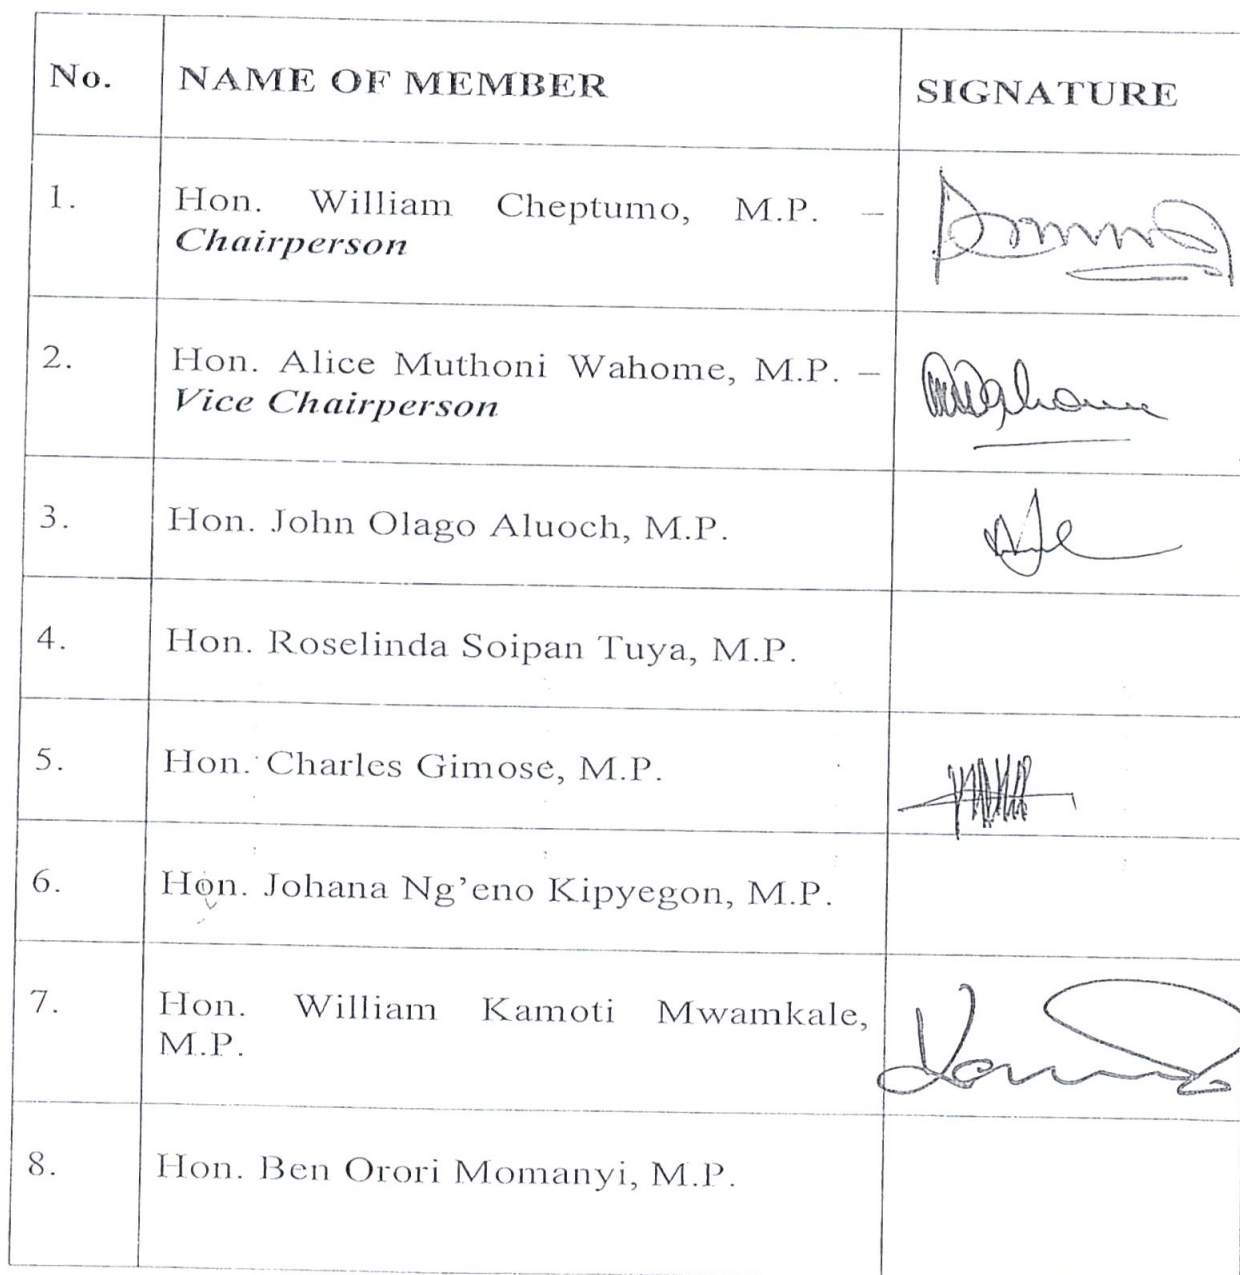 No. NAME OF MEMBER SIGNATURE
1. Hon. William Cheptumo, M.P. –
Chairperson
2. Hon. Alice Muthoni Wahome, M.P. –
Vice Chairperson
3. Hon. John Olago Aluoch, M.P.
4. Hon. Roselinda Soipan Tuya, M.P.
5. Hon. Charles Gimose, M.P.
6. Hon. Johana Ng’eno Kipyegon, M.P.
7. Hon. William Kamoti Mwamkale,
M.P.
8. Hon. Ben Orori Momanyi, M.P.